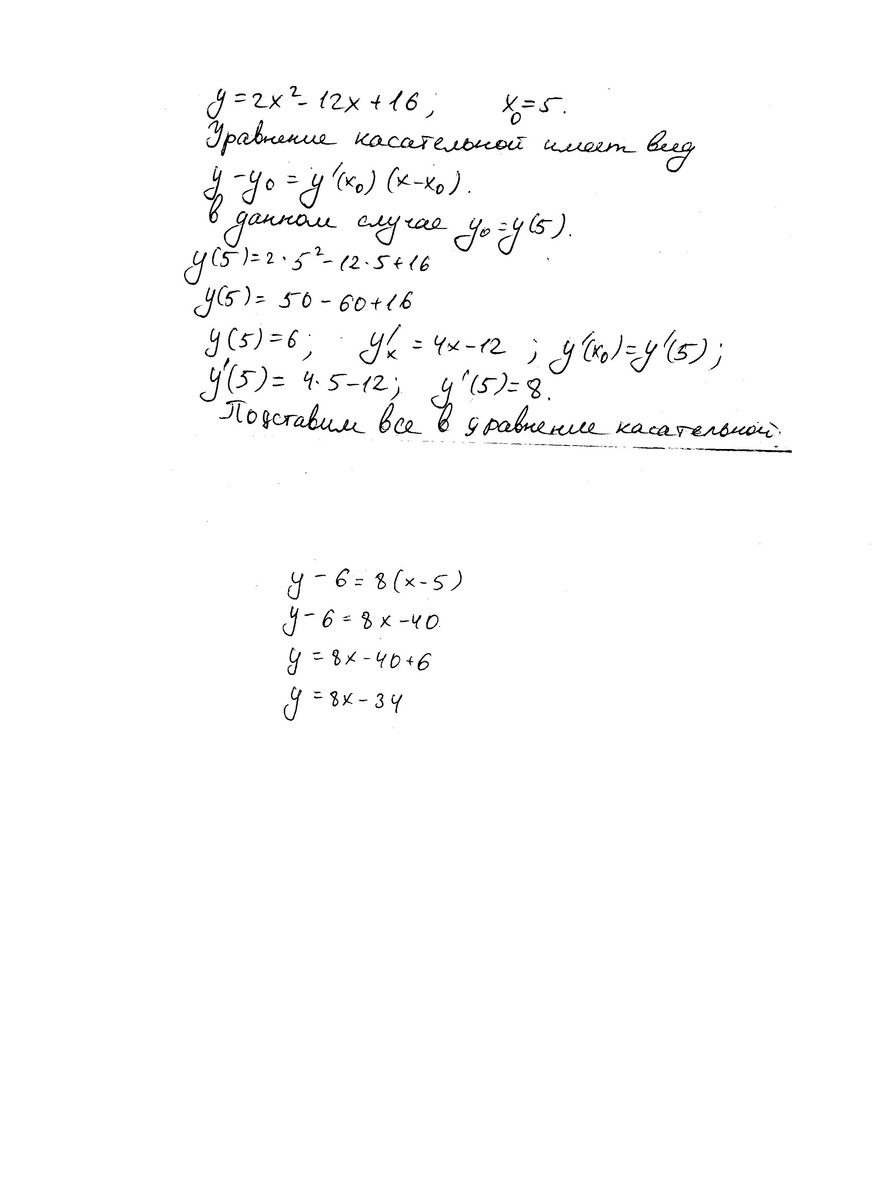 y = 2x² - 12x + 16; x₀ = 5.
Уравнение касательной имеет вид
y - y₀ = y'(x₀) (x - x₀).
в данном случае y₀ = y(5).
y(5) = 2 · 5² - 12 · 5 + 16
y(5) = 50 - 60 + 16
y(5) = 6; y'ₓ = 4x - 12; y'(x₀) = y'(5);
y'(5) = 4 · 5 - 12; y'(5) = 8.
Подставим все в уравнение касательной:
y - 6 = 8(x - 5)
y - 6 = 8x - 40
y = 8x - 40 + 6
y = 8x - 34